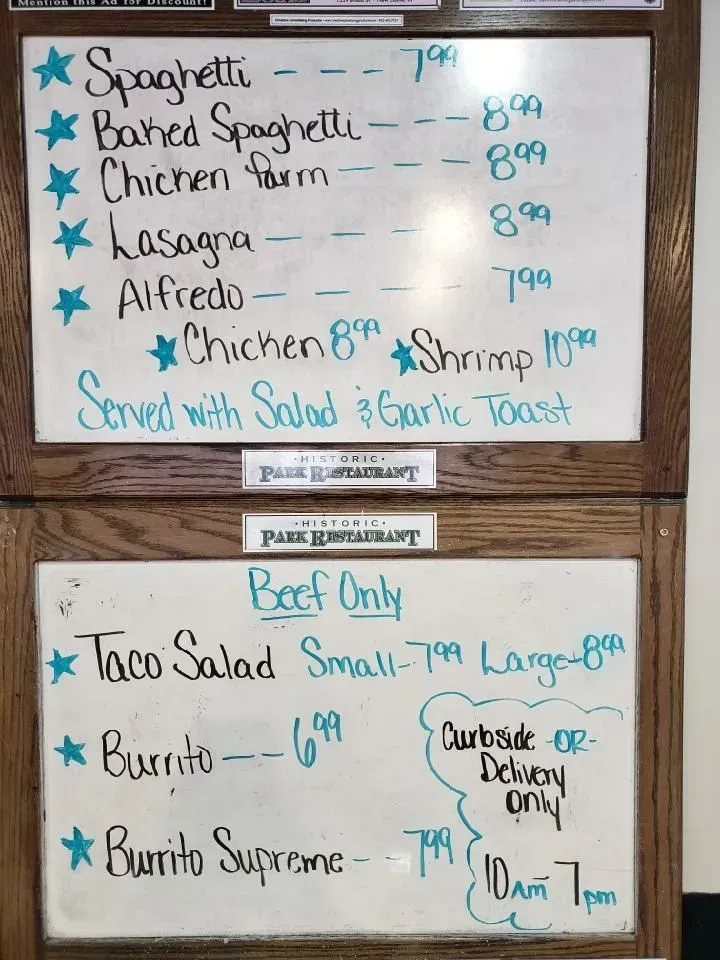 Mention this Ad for Discount!
Spaghetti --- 7.99
Baked Spaghetti --- 8.99
Chicken Parm --- 8.99
Lasagna --- 8.99
Alfredo --- 7.99
Chicken 8.99 Shrimp 10.99
Served with Salad & Garlic Toast
·HISTORIC·
PARK RESTAURANT
·HISTORIC·
PARK RESTAURANT
Beef Only
Taco Salad Small-7.99 Large-8.99
Burrito -- 6.99
Burrito Supreme -- 7.99
Curbside -OR-
Delivery
Only
10am- 7pm